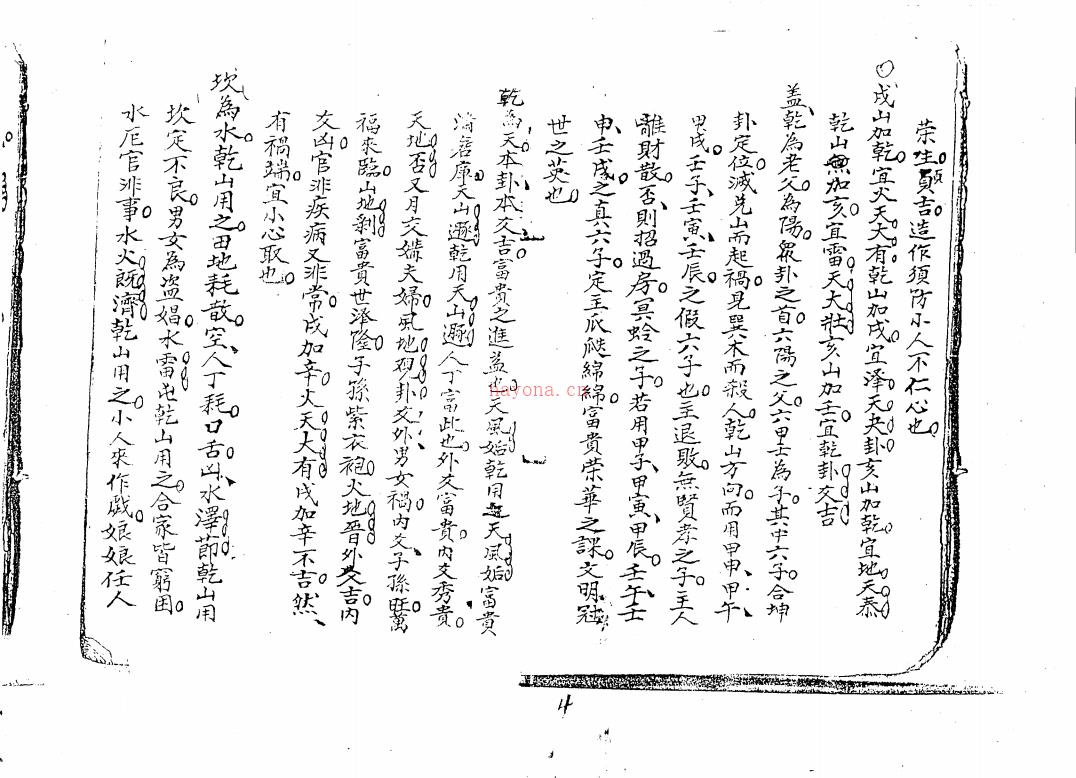 荣生員吉造作須防小人不仁心也
戍山加乾宜火天大有乾山加戍宜泽天夬卦亥山加乾宜地天泰
乾山無加亥宜雷天大壯亥山加壬宜乾卦交吉
盖乾為老父為陽眾卦之首六陽之父六甲士為子其中六子合坤
卦定位滅兑山而起禍見巽木而殺人乾山方向而用甲申甲午
甲戍壬子壬寅壬辰之假六子也主退敗無賢孝之子主人
離財散否則招過房冥蛉之子若用甲子甲寅甲辰壬午壬
申壬戍之真六子定主瓜瓞綿綿富貴荣華之課文明冠
世之英也
乾為天本卦本爻吉富貴之進益也天風姤乾用天風姤富貴
滿倉庫天山遯乾用天山遯人丁富此也外爻富貴内爻秀貴
天地否又月交媾夫婦風地观卦爻外男女禍内爻子孫旺萬
福來臨山地剥富貴世澤隆子孫紫衣袍火地晋外爻吉内
爻凶官非疾病又非常戍加辛火天大有戍加辛不吉然
有禍端宜小心取也
坎為水乾山用之田地耗散空人丁耗口舌凶水澤節乾山用
坎定不良男女為盗娼水雷屯乾山用之合家皆窮困
水厄官非事水火既濟乾山用之小人來作戯娘娘任人
hayona.cn
4